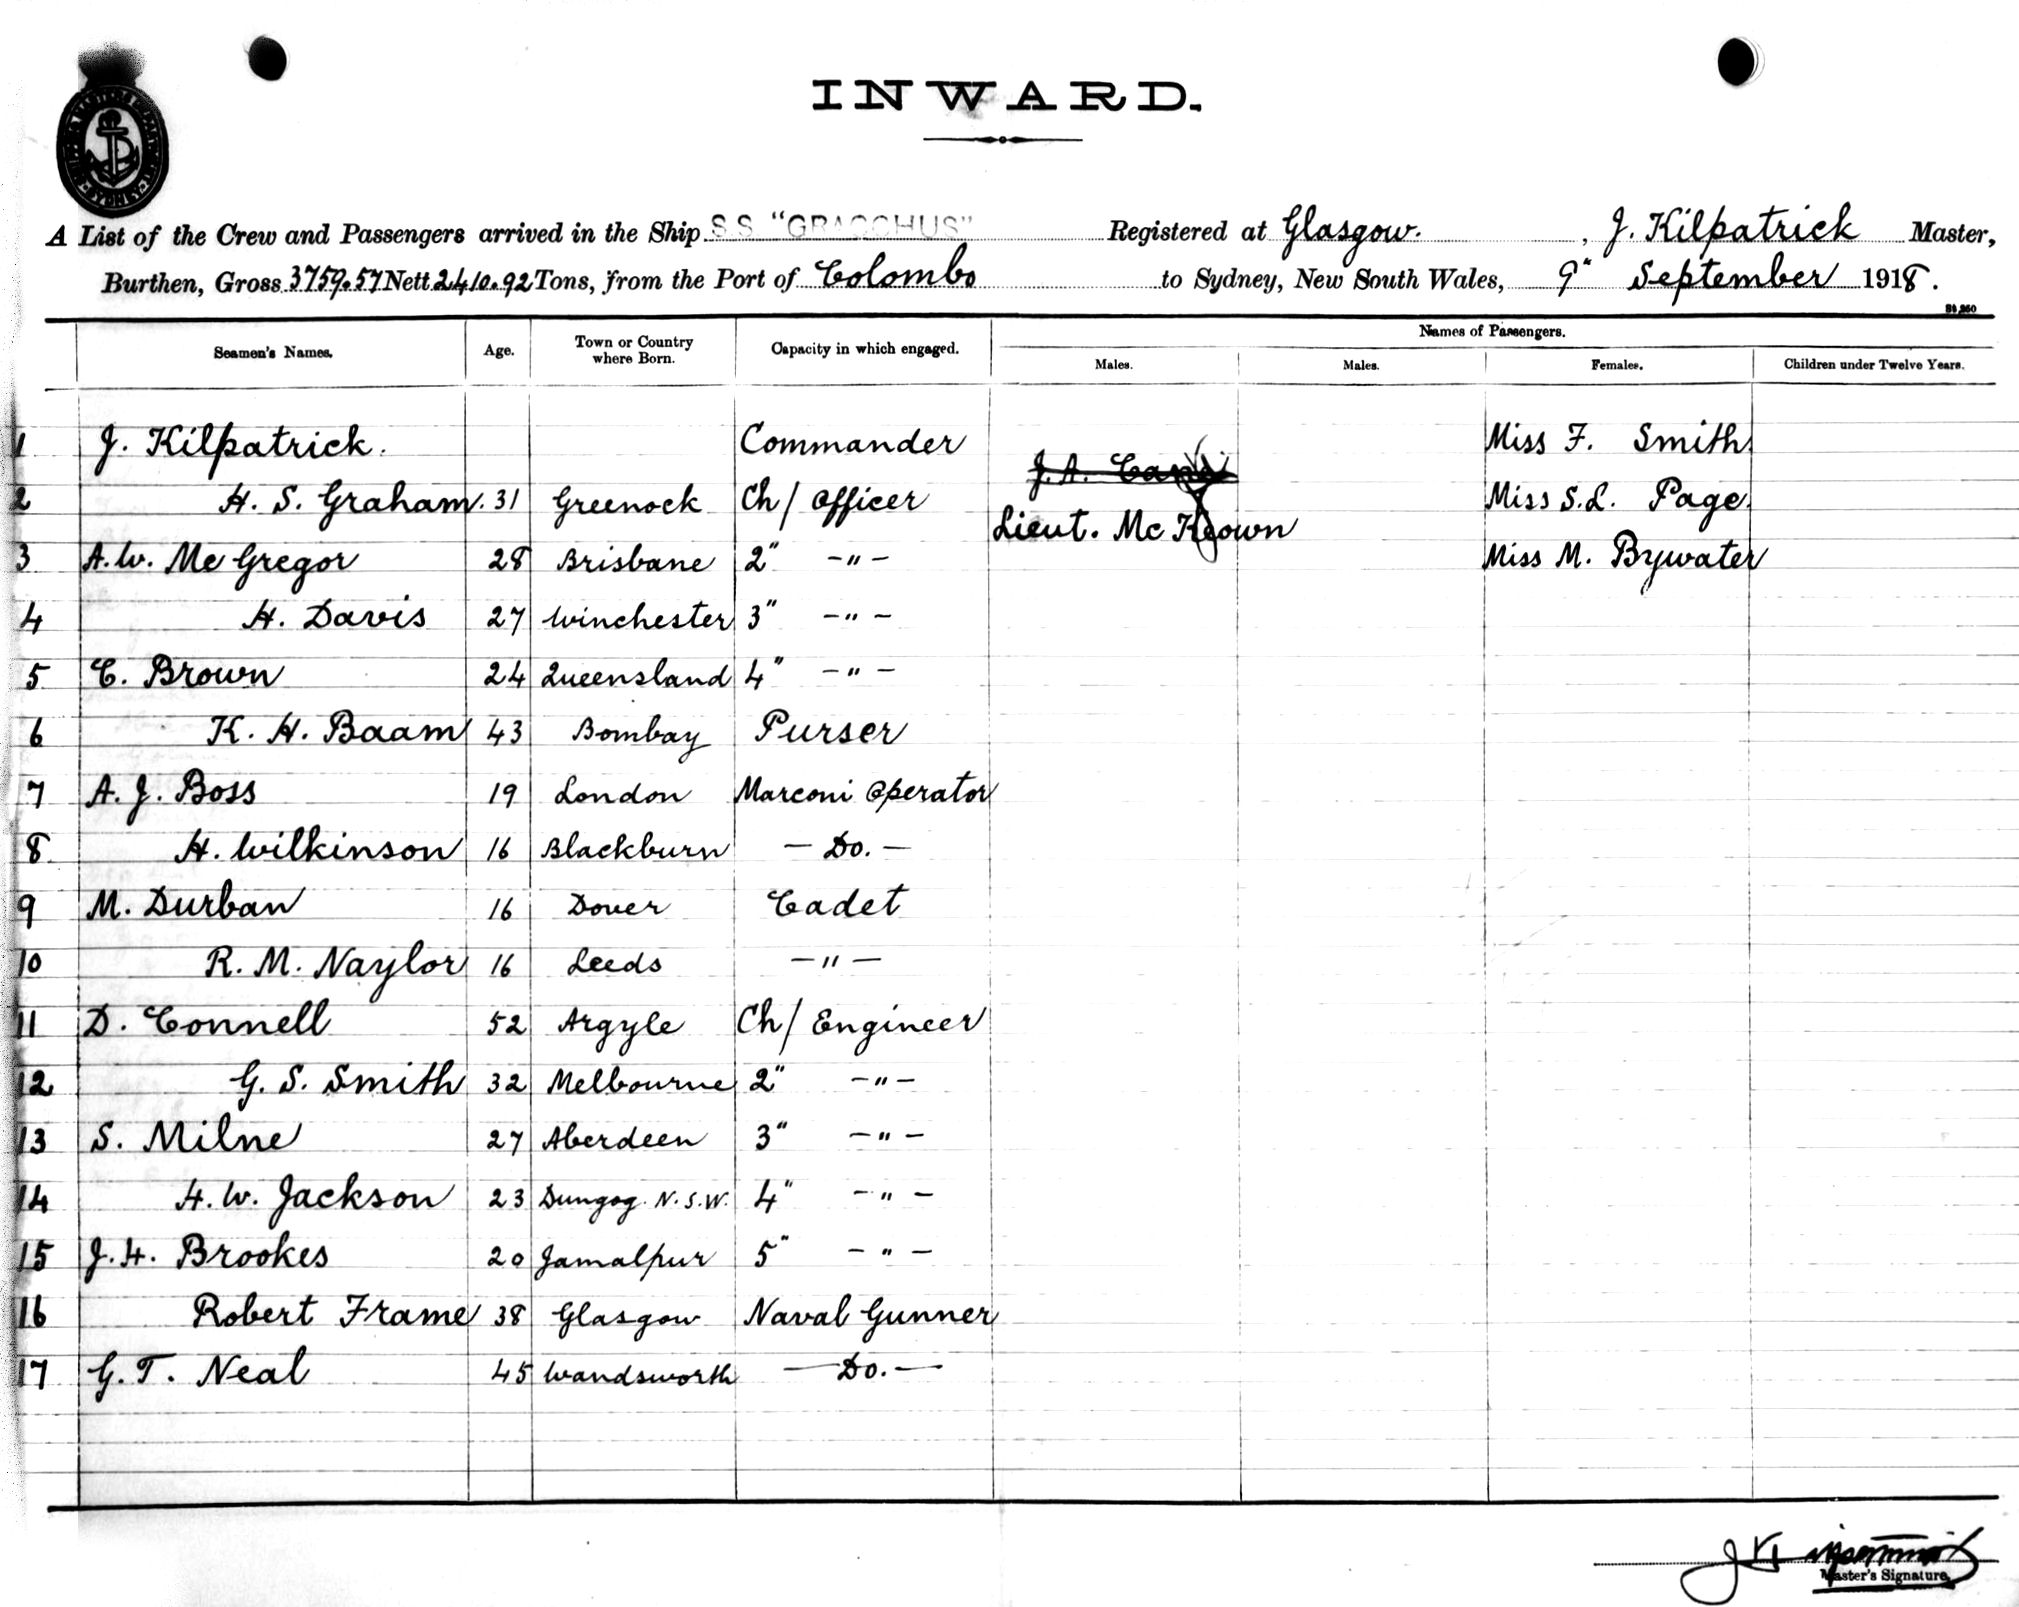 INWARD.
A List of the Crew and Passengers arrived in the Ship S.S. "GRACCHUS" Registered at Glasgow. , J. Kilpatrick Master,
Burthen, Gross 3759.57 Nett 2410.92 Tons, from the Port of Colombo to Sydney, New South Wales, 9" September 1918.
Names of Passengers.
Seamen's Names. Age. Town or Country where Born. Capacity in which engaged. Males. Males. Females. Children under Twelve Years.
1 J. Kilpatrick. Commander Miss F. Smith
J. A.
2 H. S. Graham. 31 Greenock Ch/ Officer Miss S.L. Page
Lieut. Mc Keown
3 A.W. McGregor 28 Brisbane 2" -"- Miss M. Bywater
4 H. Davis 27 Winchester 3" -"-
5 C. Brown 24 Queensland 4" -"-
6 K. H. Baam 43 Bombay Purser
7 A. J. Boss 19 London Marconi Operator
8 H. Wilkinson 16 Blackburn - Do. -
9 M. Durban 16 Dover Cadet
10 R. M. Naylor 16 Leeds -"-
11 D. Connell 52 Argyle Ch/ Engineer
12 G. S. Smith 32 Melbourne 2" -"-
13 S. Milne 27 Aberdeen 3" -"-
14 H. W. Jackson 23 Dungog N.S.W. 4" -"-
15 J. H. Brookes 20 Jamalpur 5" -"-
16 Robert Frame 38 Glasgow Naval Gunner
17 G. T. Neal 45 Wandsworth - Do. -
Master's Signature.